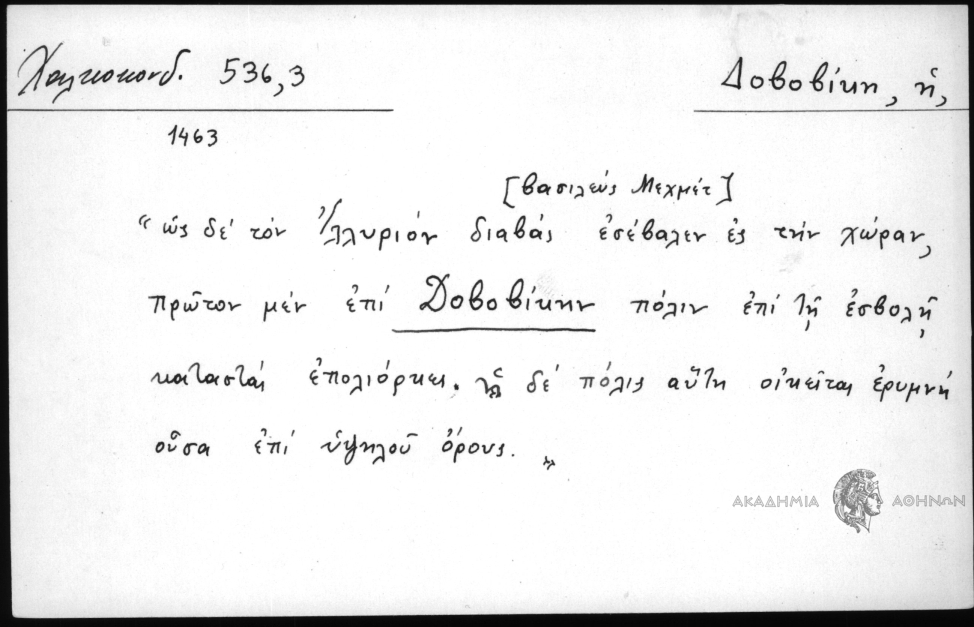 Χαλκοκονδ. 536,3
Δοβοβίκη, ἡ,
1463
[βασιλεύς Μεχμέτ]
“ ὡς δέ τόν Ἰλλυριόν διαβάς ἐσέβαλεν ἐς τήν χώραν,
πρῶτον μέν ἐπί Δοβοβίκην πόλιν ἐπί τῇ ἐσβολῇ
καταστάς ἐπολιόρκει. ἡ δέ πόλις αὕτη οἰκεῖται ἐρυμνή
οὖσα ἐπί ὑψηλοῦ ὄρους. „
ΑΚΑΔΗΜΙΑ ΑΘΗΝΩΝ